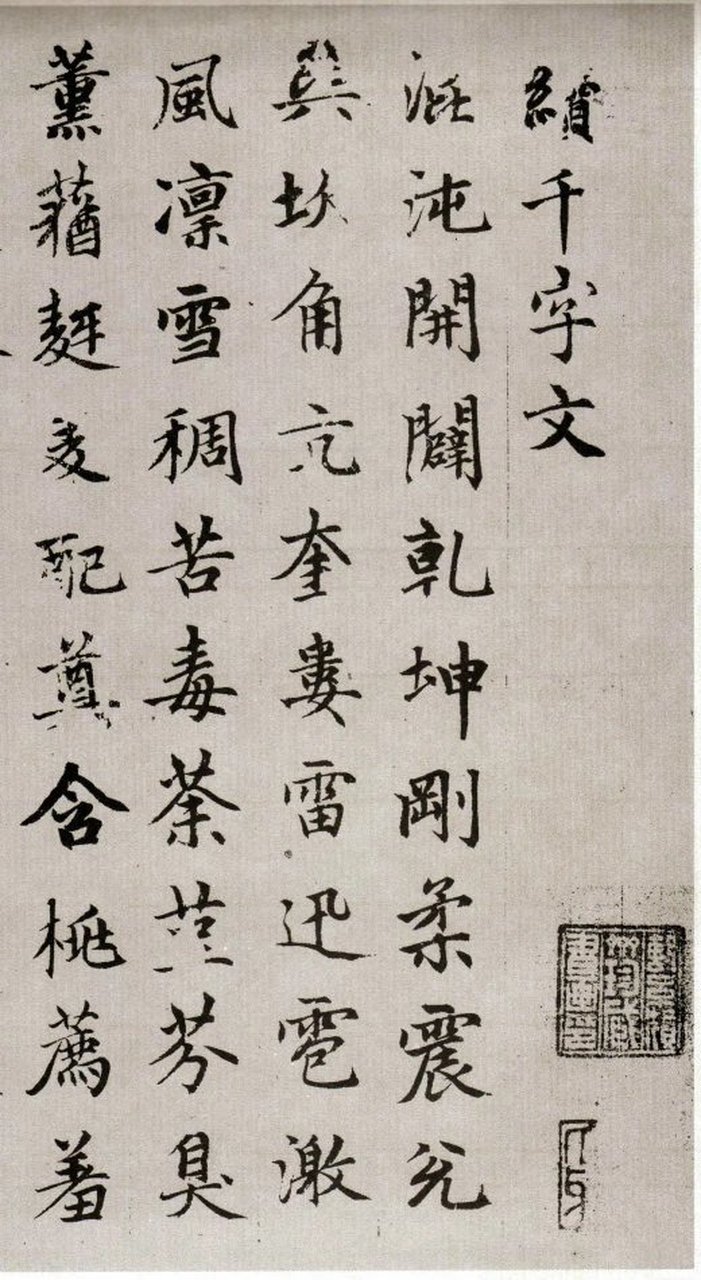 續千字文
混沌開闢乾坤剛柔震兌
巽坎角亢奎婁雷迅雹激
風凛雪稠苦毒荼芬臭
薰蕕麸麦配尊含桃薦羞